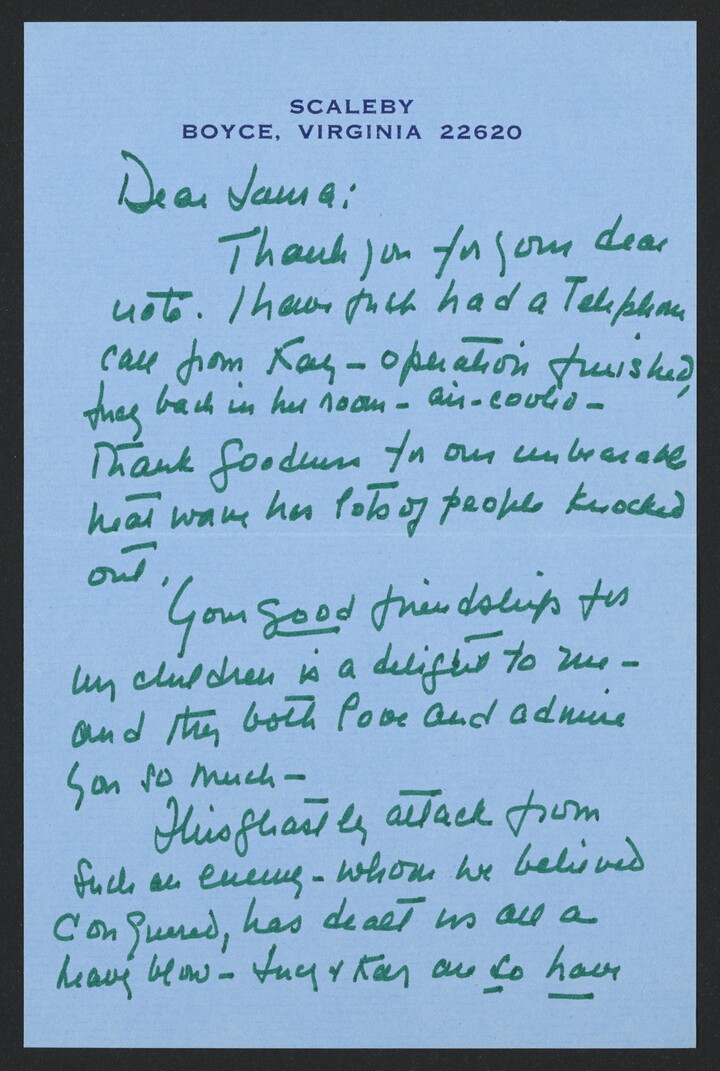 SCALEBY
BOYCE, VIRGINIA 22620
Dear Laura:
Thank you for your dear
note. I have just had a Telephone
call from Kay – operation finished,
Lucy back in her room – air-cooled –
Thank Goodness for our unbearable
heat wave has lots of people knocked
out.
Your good friendship for
my children is a delight to me –
and they both love and admire
you so much –
This ghastly attack from
such an enemy – whom we believed
conquered, has dealt us all a
heavy blow – Lucy & Kay are so